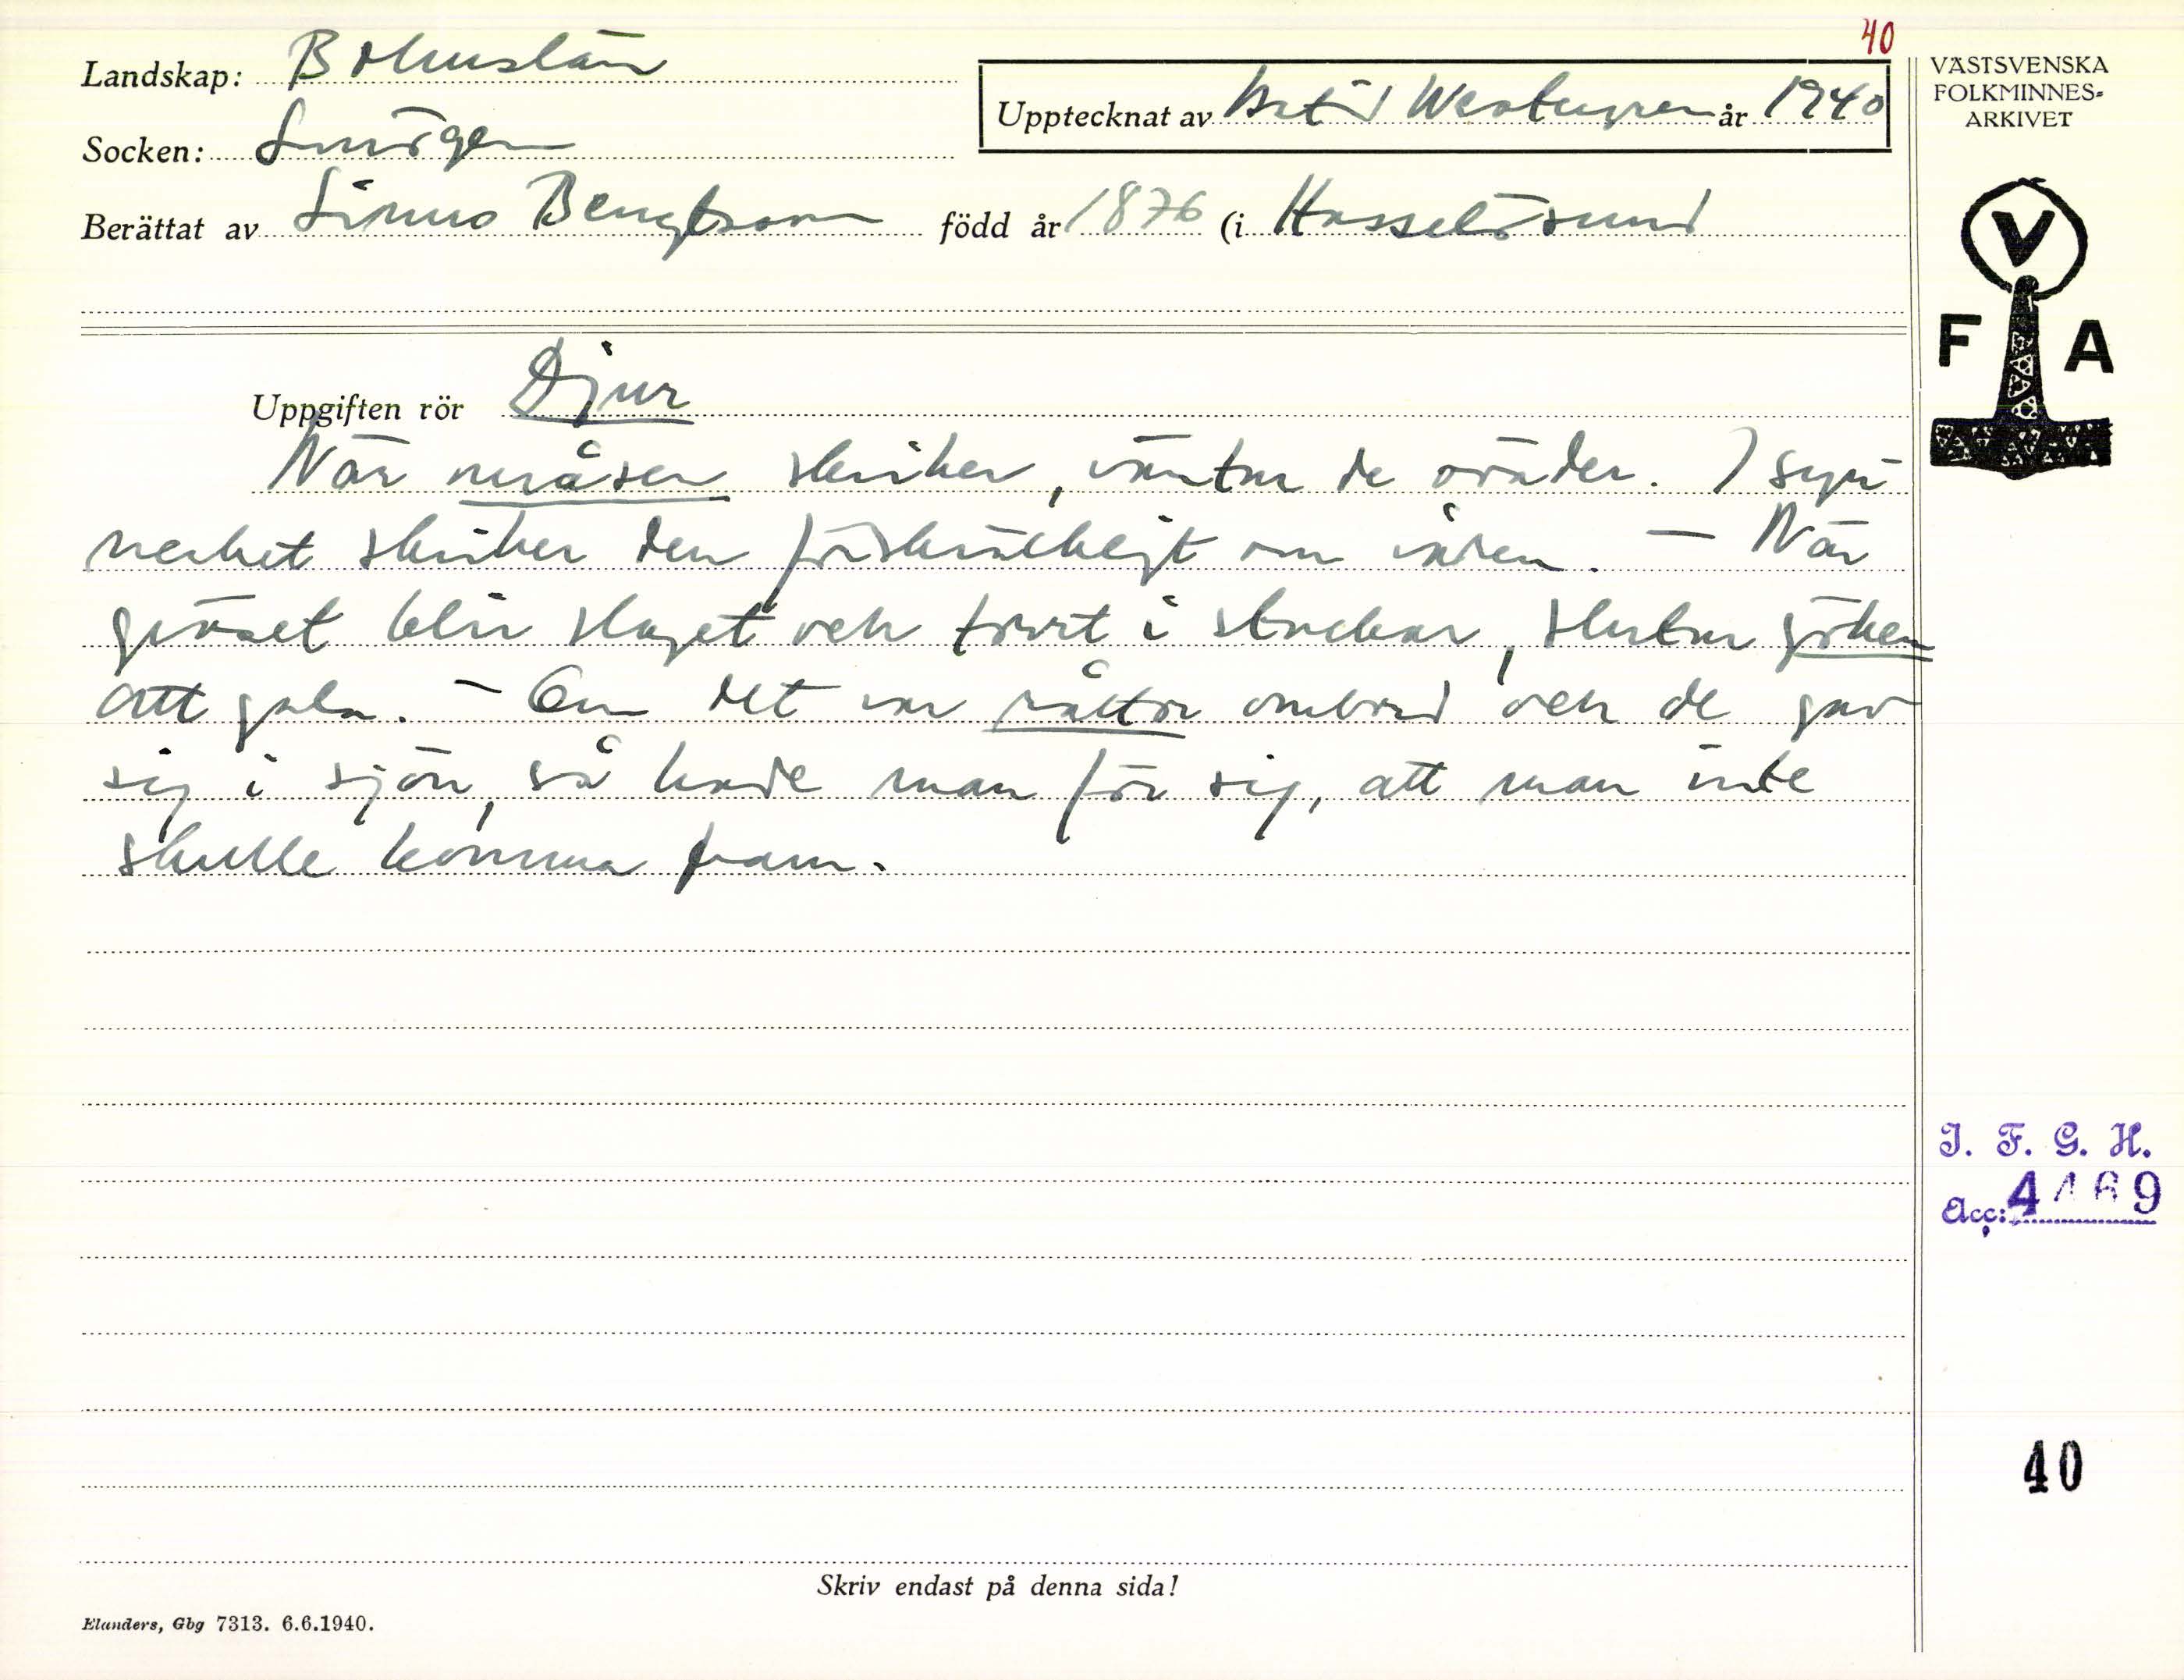 40
Landskap: Bohuslän
Upptecknat av Astrid Westergren år 1940
Socken: Smögen
Berättat av Simno Bengtsson född år 1876 (i Hasselösund
VÄSTSVENSKA
FOLKMINNES-
ARKIVET
V
F A
Uppgiften rör Djur
När måsen skriker, väntar de oväder. I syn
nerhet skriker den förskräckligt om våren. – När
gräset blir slaget och torrt i stackar, slutar göken
att gala. – Om det var råttor ombord och de gav
sig i sjön, så hade man för sig, att man inte
skulle komma fram.
I. F. G. H.
Acc: 4469
40
Skriv endast på denna sida!
Elanders, Gbg 7313. 6.6.1940.